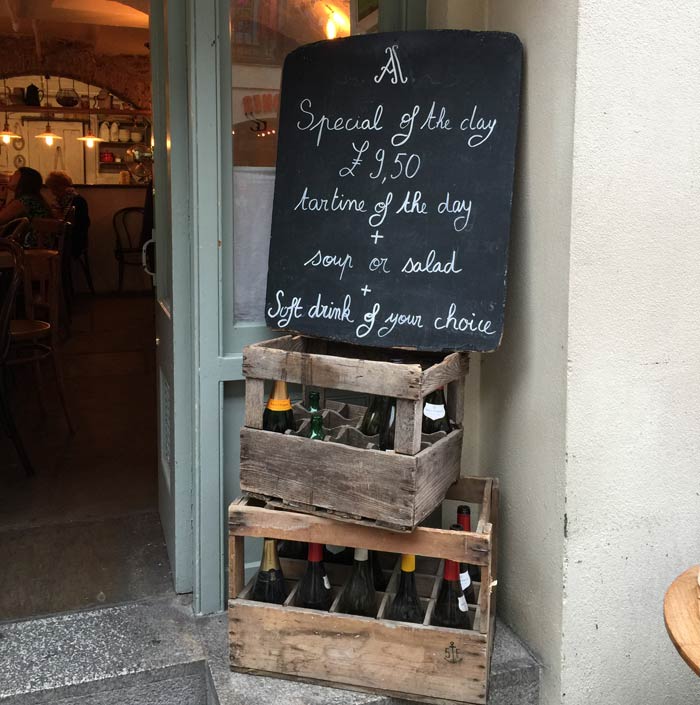 AA
Special of the day
£9,50
tartine of the day
+
soup or salad
+
Soft drink of your choice